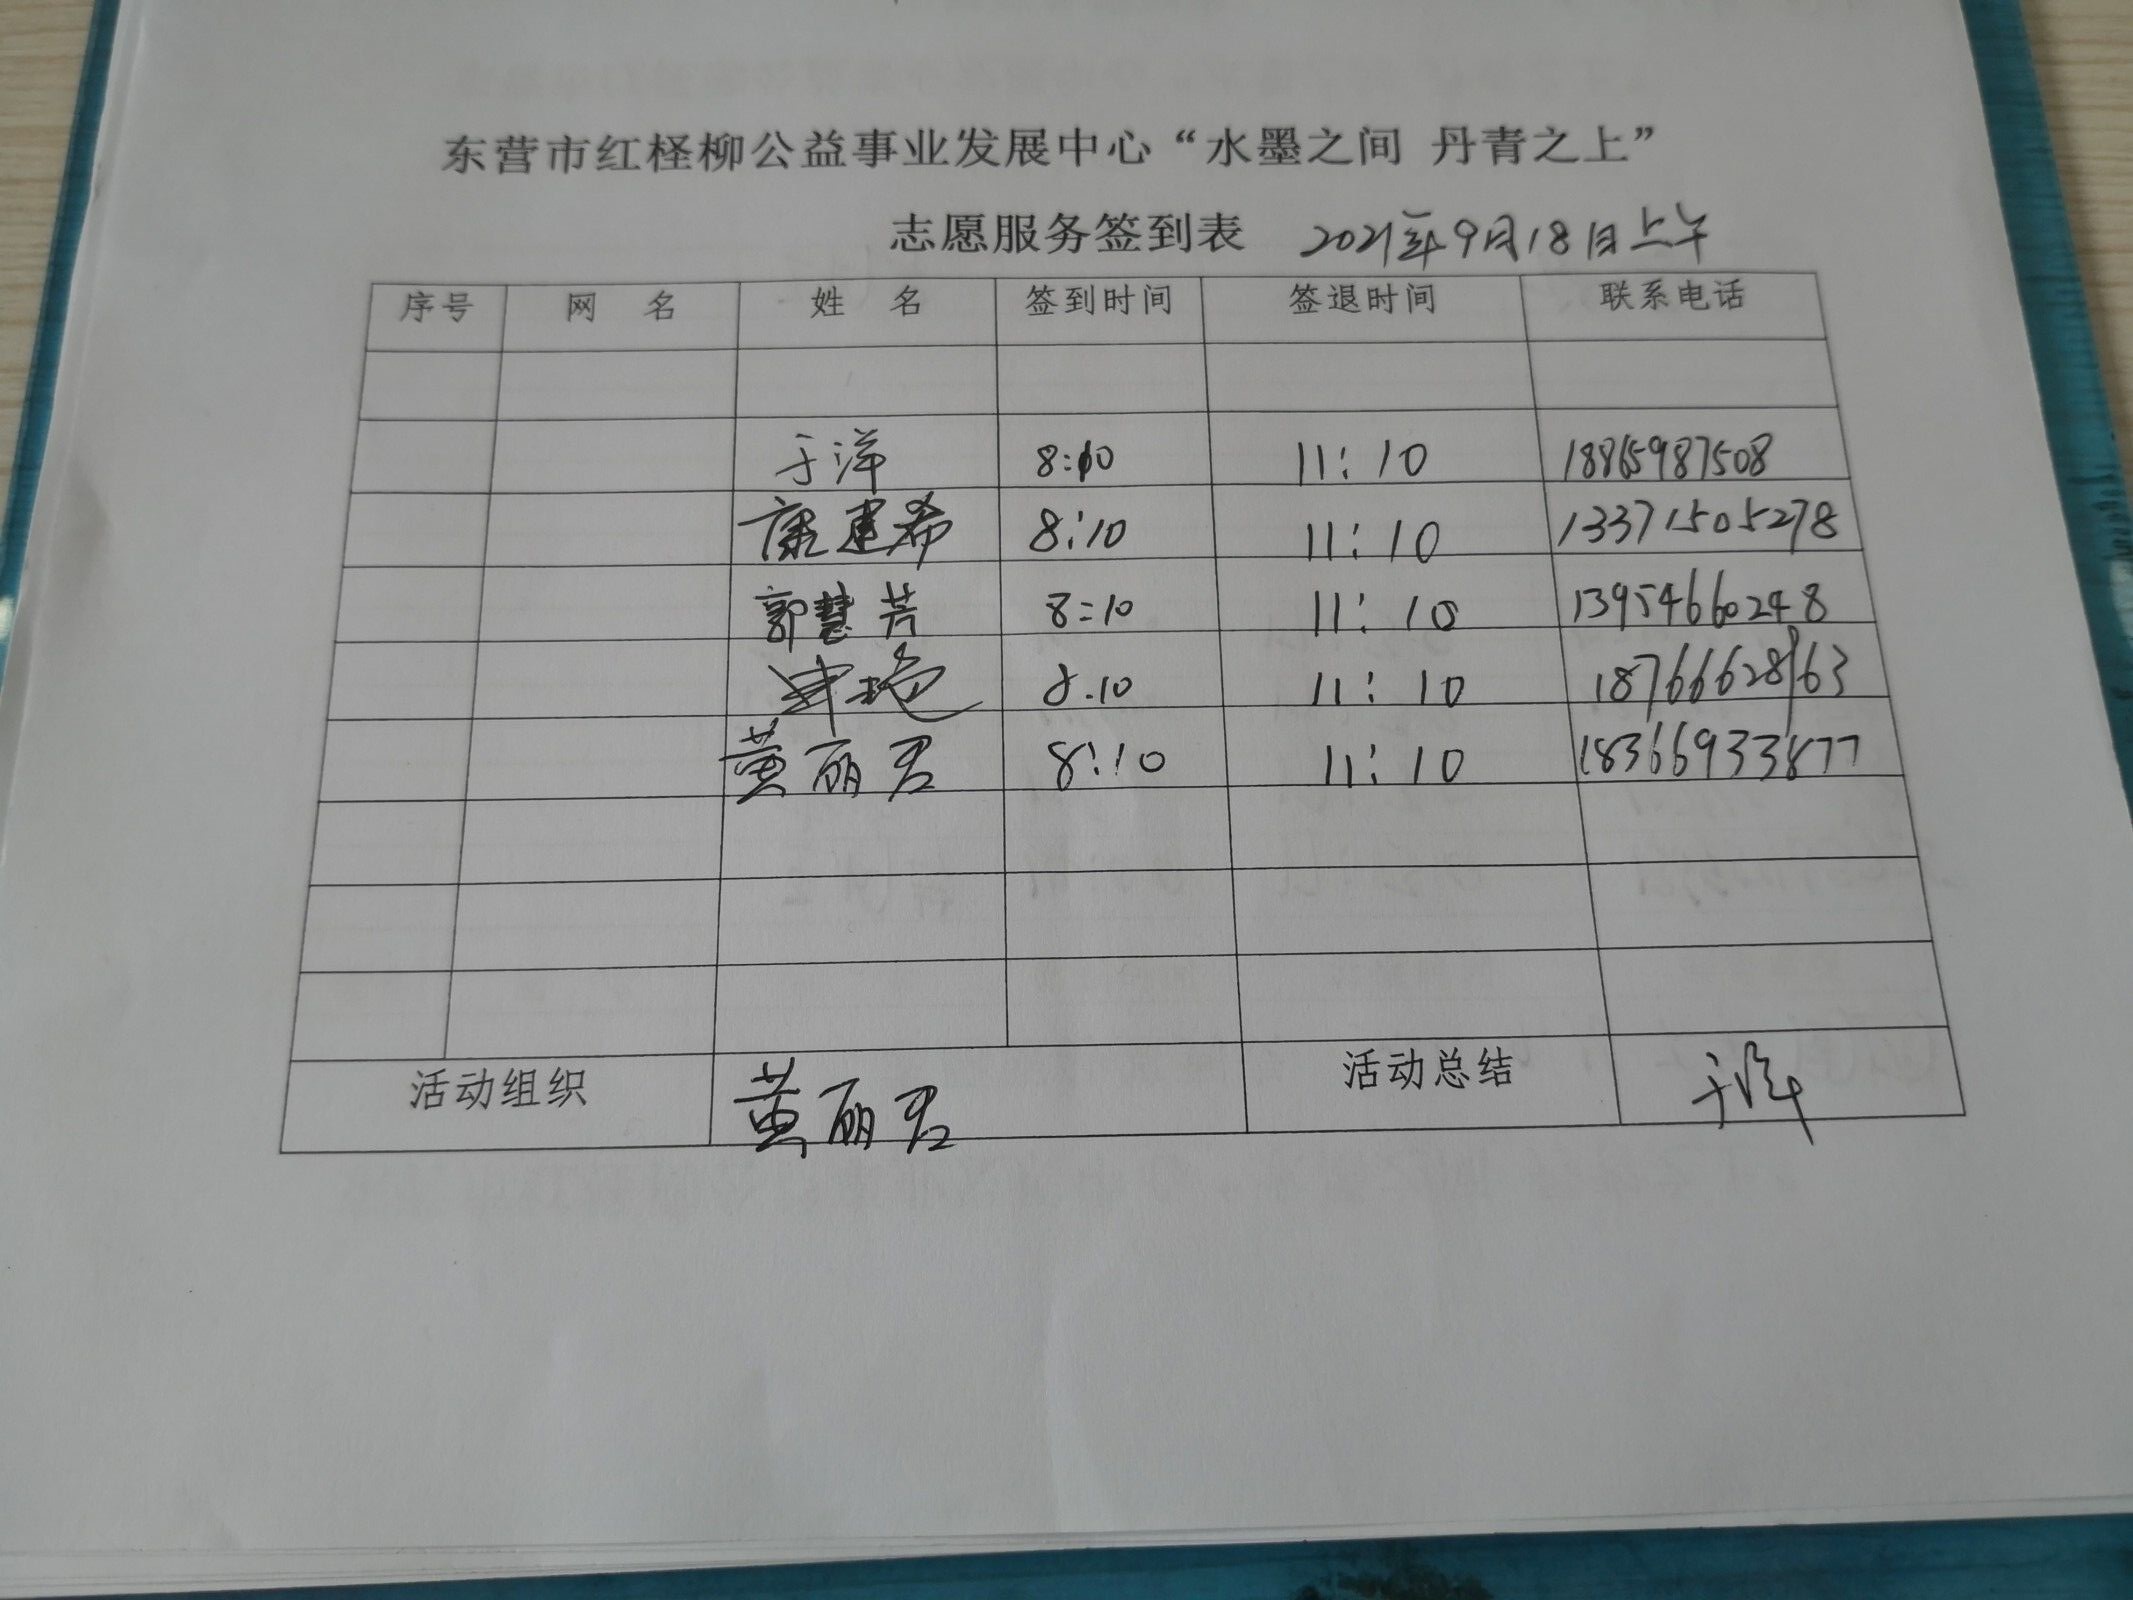 东营市红柽柳公益事业发展中心“水墨之间 丹青之上”
志愿服务签到表 2021年9月18日上午
序号 网 名 姓 名 签到时间 签退时间 联系电话
于洋 8:10 11:10 18865987508
康建希 8:10 11:10 13371505278
郭慧芳 8:10 11:10 13954660248
8.10 11:10 18766628163
黄丽君 8:10 11:10 18366933877
活动组织 黄丽君 活动总结 于洋